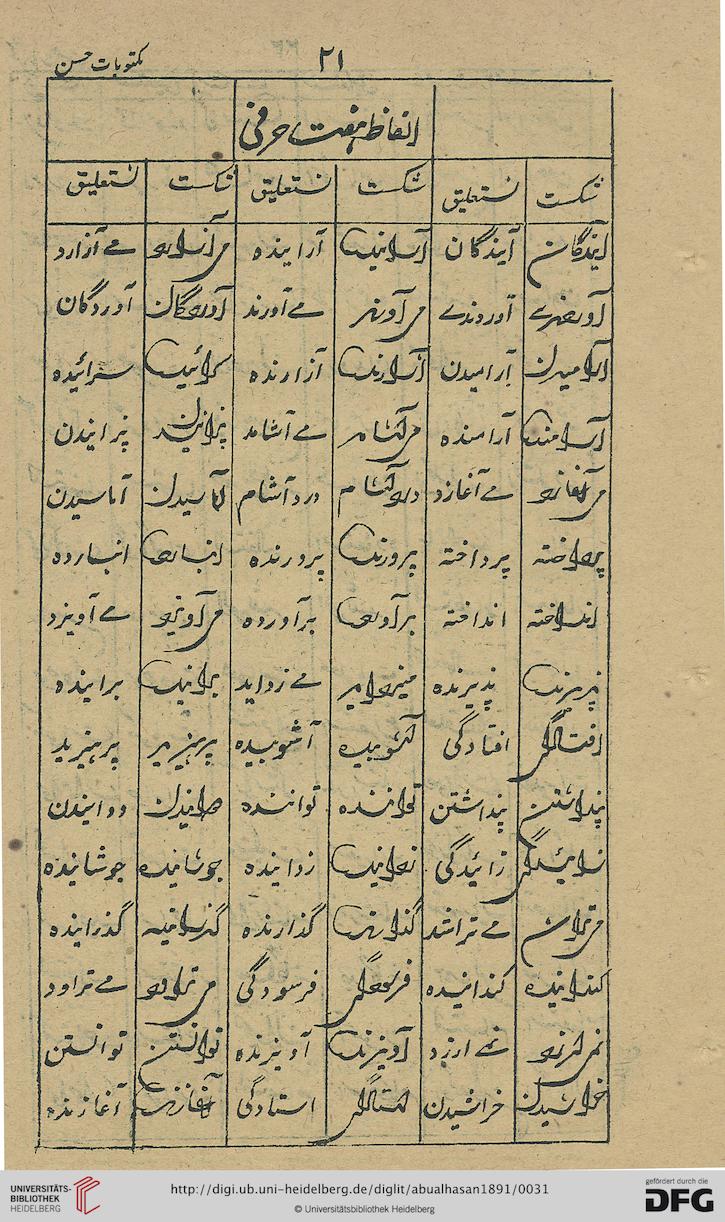 ۲۱ مکتوبات حسن
الفاظ ہفت حرفی
شکست نستعلیق شکست نستعلیق شکست نستعلیق
آیندگان آیندگان آرایندہ آرایندہ می آزارد مے آزارد
آوردندے آوردندے می آورند مے آورند آوردگان آوردگان
آرامیدن آرامیدن آزارندہ آزارندہ سرائیدہ سرائیدہ
آرامندہ آرامندہ می آشامد مے آشامد پزانیدن پزایندن
می آغازد مے آغازد درد آشام درد آشام آماسیدن آماسیدن
پرداختہ پرداختہ پرورندہ پرورندہ انباردہ انباردہ
انداختہ انداختہ برآوردہ برآوردہ می آویزد مے آویزد
پذیرندہ پذیرندہ میزداید مے زداید برایندہ برایندہ
افتادگی افتادگی آشوبیدہ آشوبیدہ پرہیزید پرہیزید
پنداشتن پنداشتن توانندہ توانندہ دوانیدن دوایندن
زائیدگی زائیدگی زدایندہ زدایندہ جوشاندہ جوشایندہ
می تراشد مے تراشد گذارندہ گذارندہ گذرانیدہ گذرایندہ
کندانیدہ کندانیدہ فرسودگی فرسودگی می تراود مے تراود
نمی ارزد نمے ارزد آویزندہ آویزندہ توانستن توانستن
خراشیدن خراشیدن استادگی استادگی آغازندہ آغازندہ
UNIVERSITÄTS-
BIBLIOTHEK
HEIDELBERG
http://digi.ub.uni-heidelberg.de/diglit/abualhasan1891/0031
© Universitätsbibliothek Heidelberg
gefördert durch die
DFG